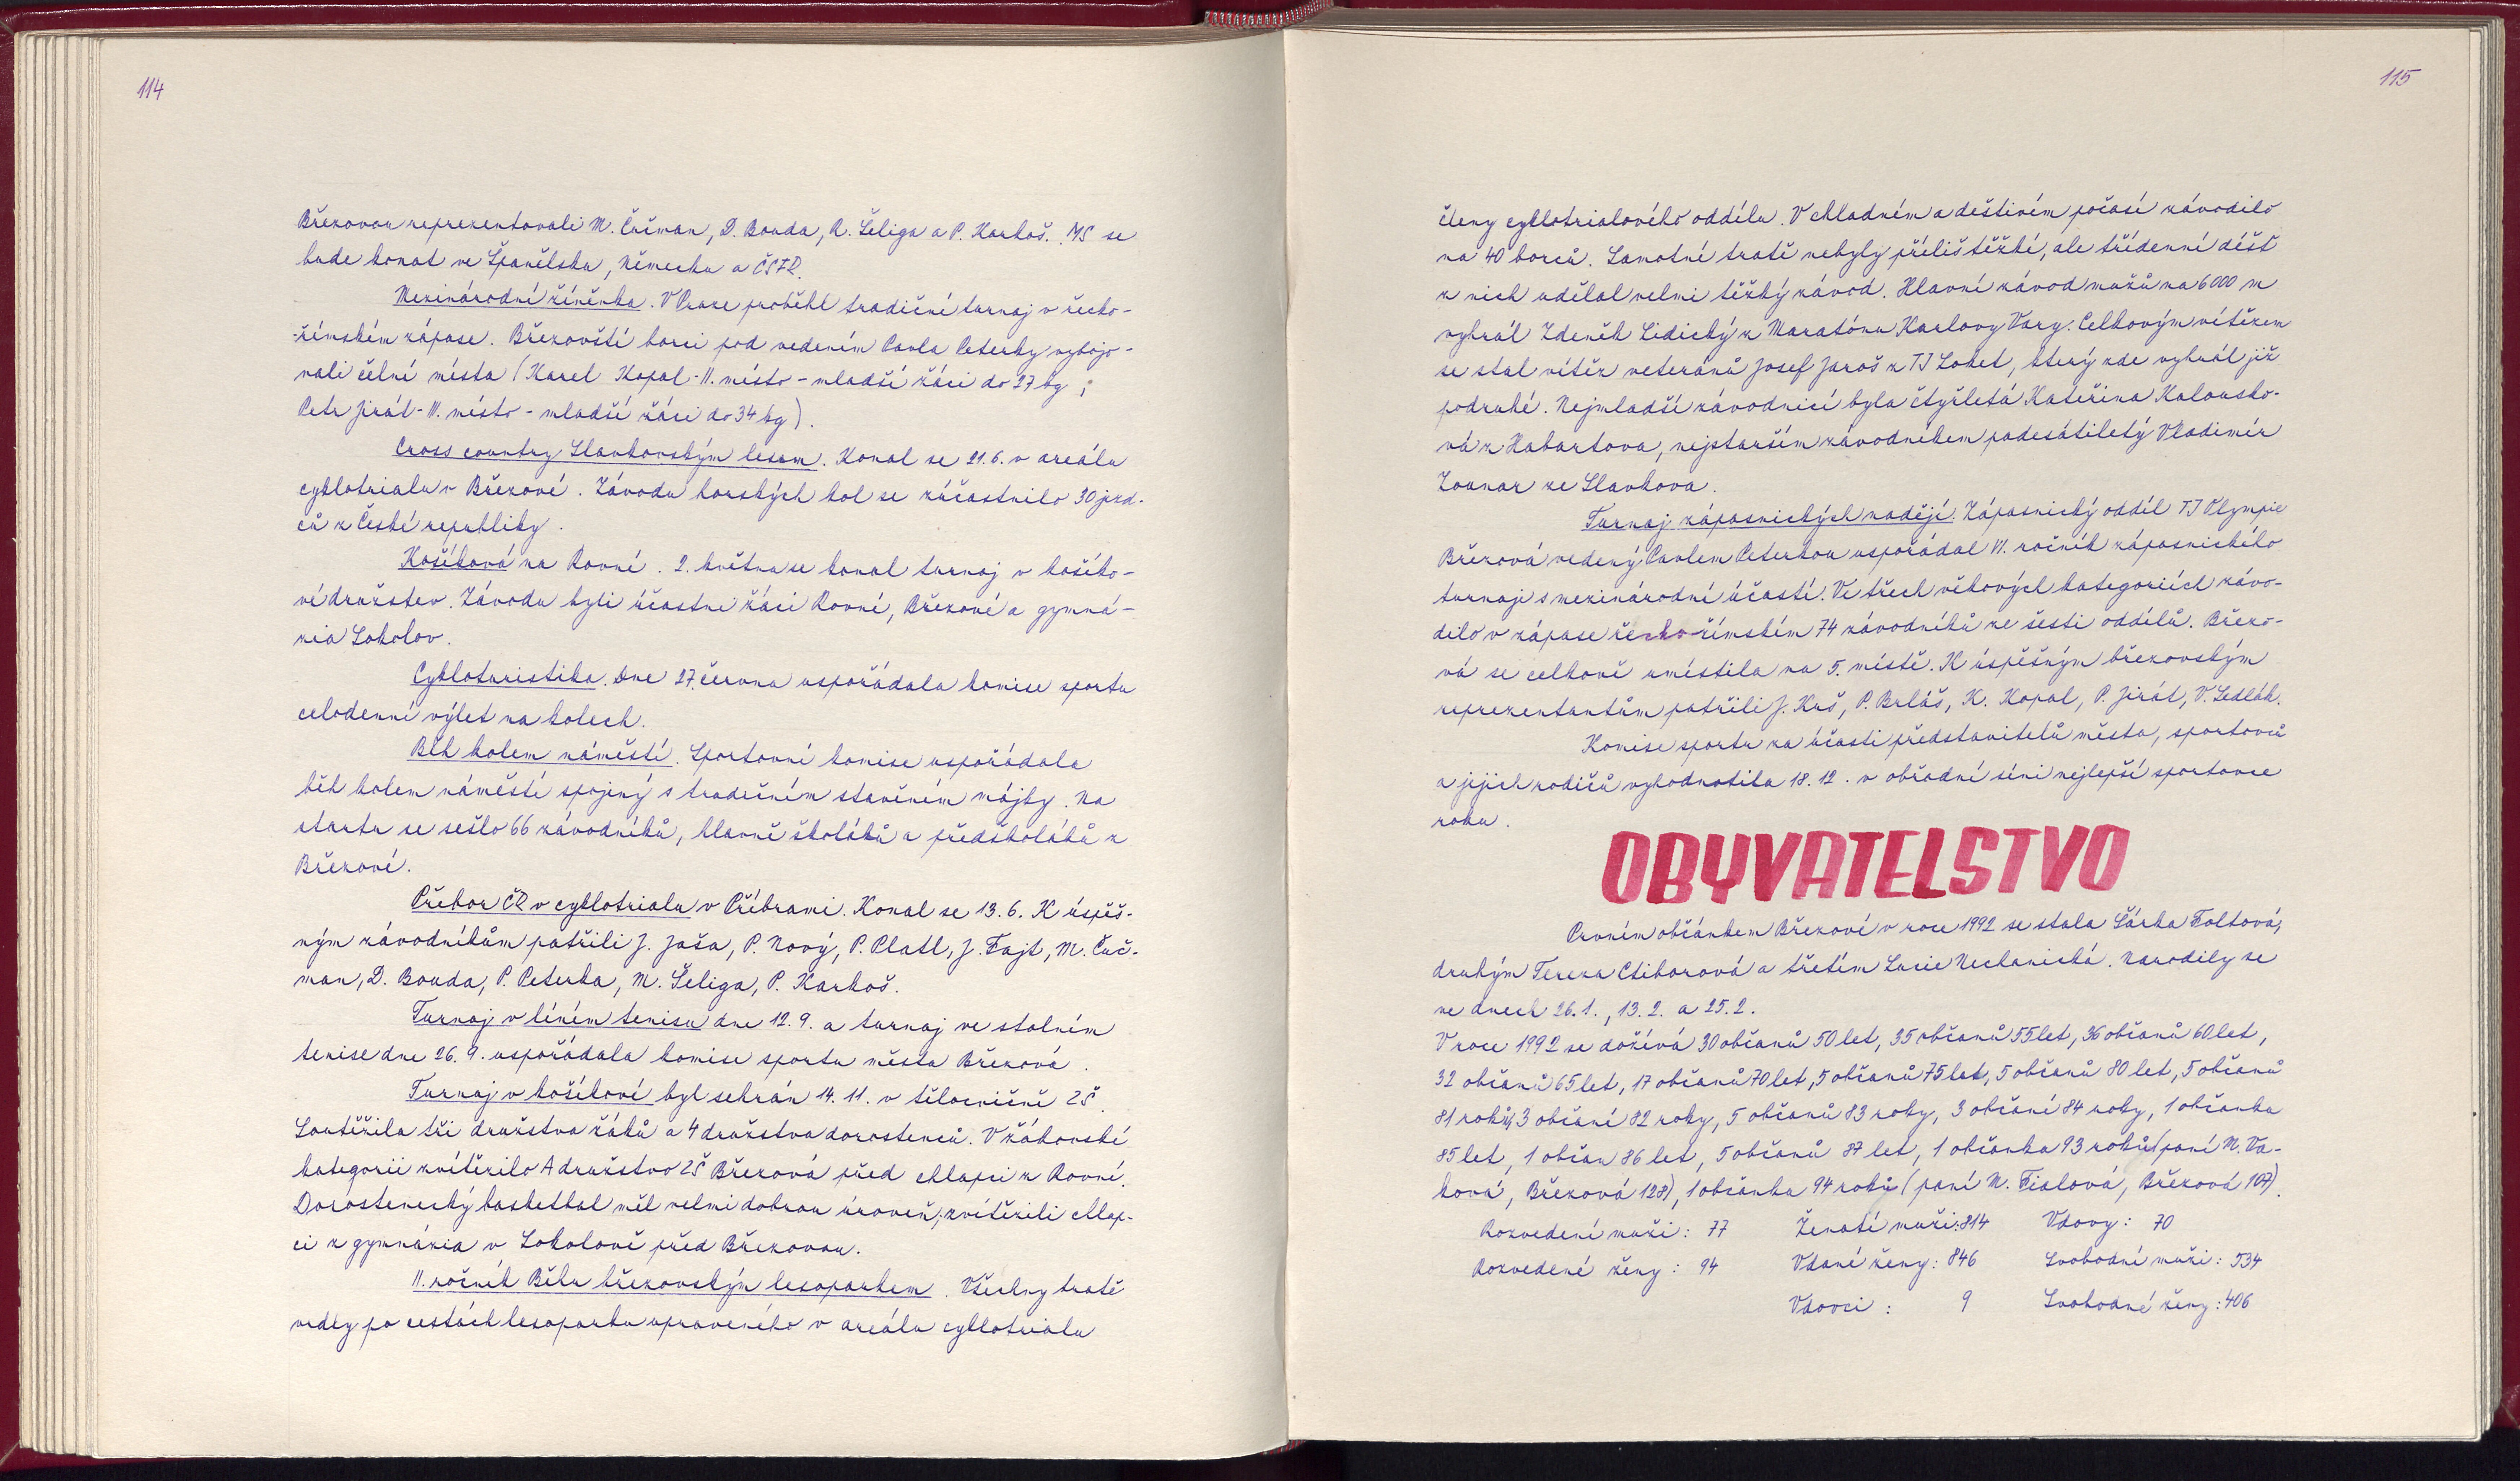 114
Březovou reprezentovali M. Čučman, D. Bouda, R. Šeliga a P. Karkoš. MS se
bude konat ve Španělsku, Německu a ČSFR.
Mezinárodní žíněnka. V Praze proběhl tradiční turnaj v řecko-
-římském zápase. Březovští borci pod vedením Pavla Peterky vybojo-
vali čelní místa (Karel Kopal - II. místo - mladší žáci do 27 kg ;
Petr Jirát - II. místo - mladší žáci do 34 kg).
Cross country Slavkovským lesem. Konal se 21.6. v areálu
cyklotrialu v Březové. Závodu horských kol se zúčastnilo 30 jezd-
ců z České republiky.
Košíková na Rovni. 2. května se konal turnaj v košíko-
vé družstev. Závodu byli účastni žáci Rovné, Březové a gymná-
zia Sokolov.
Cykloturistika. Dne 27. června uspořádala komise sportu
celodenní výlet na kolech.
Běh kolem náměstí. Sportovní komise uspořádala
běh kolem náměstí spojený s tradičním stavěním májky. Na
startu se sešlo 66 závodníků, hlavně školáků a předškoláků z
Březové.
Přebor ČR v cyklotrialu v Příbrami. Konal se 13.6. K úspěš-
ným závodníkům patřili J. Jaša, P. Nový, P. Platl, J. Fajt, M. Čuč-
man, D. Bouda, P. Peterka, M. Šeliga, P. Karkoš.
Turnaj v líném tenisu dne 12.9. a turnaj ve stolním
tenise dne 26.9. uspořádala komise sportu města Březová.
Turnaj v košíkové byl sehrán 14.11. v tělocvičně ZŠ.
Soutěžila tři družstva žáků a 4 družstva dorostenců. V žákovské
kategorii zvítězilo A družstvo ZŠ Březová před chlapci z Rovné.
Dorostenecký basketbal měl velmi dobrou úroveň; zvítězili chlap-
ci z gymnázia v Sokolově před Březovou.
II. ročník Běhu březovským lesoparkem. Všechny tratě
vedly po cestách lesoparku upraveného v areálu cyklotrialu
115
členy cyklotrialového oddílu. V chladném a deštivém počasí závodilo
na 40 borců. Samotné tratě nebyly příliš těžké, ale třídenní déšť
z nich udělal velmi těžký závod. Hlavní závod mužů na 6000 m
vyhrál Zdeněk Lidický z Maratónu Karlovy Vary. Celkovým vítězem
se stal vítěz veteránů Josef Jaroš z TJ Loket, který zde vyhrál již
podruhé. Nejmladší závodnicí byla čtyřletá Kateřina Kalousko-
vá z Habartova, nejstarším závodníkem padesátiletý Vladimír
Zounar ze Slavkova.
Turnaj zápasnických nadějí. Zápasnický oddíl TJ Olympie
Březová vedený Pavlem Peterkou uspořádal VI. ročník zápasnického
turnaje s mezinárodní účastí. Ve třech věkových kategoriích závo-
dilo v zápase řecko-římském 74 závodníků ze šesti oddílů. Březo-
vá se celkově umístila na 5. místě. K úspěšným březovským
reprezentantům patřili J. Kuš, P. Beláš, K. Kopal, P. Jirát, V. Sedlák.
Komise sportu za účasti představitelů města, sportovců
a jejich rodičů vyhodnotila 18.12. v obřadní síni nejlepší sportovce
roku.
OBYVATELSTVO
Prvním občánkem Březové v roce 1992 se stala Šárka Foltová,
druhým Tereza Ctiborová a třetím Lucie Nechanická. Narodily se
ve dnech 26.1., 13.2. a 25.2.
V roce 1992 se dožívá 30 občanů 50 let, 35 občanů 55 let, 36 občanů 60 let,
32 občanů 65 let, 17 občanů 70 let, 5 občanů 75 let, 5 občanů 80 let, 5 občanů
81 roků, 3 občané 82 roky, 5 občanů 83 roky, 3 občané 84 roky, 1 občanka
85 let, 1 občan 86 let, 5 občanů 87 let, 1 občanka 93 roků (paní M. Va-
ková, Březová 128), 1 občanka 94 roků (paní M. Fialová, Březová 107).
Rozvedení muži: 77 Ženatí muži: 814 Vdovy: 70
Rozvedené ženy: 94 Vdané ženy: 846 Svobodní muži: 534
Vdovci: 9 Svobodné ženy: 406